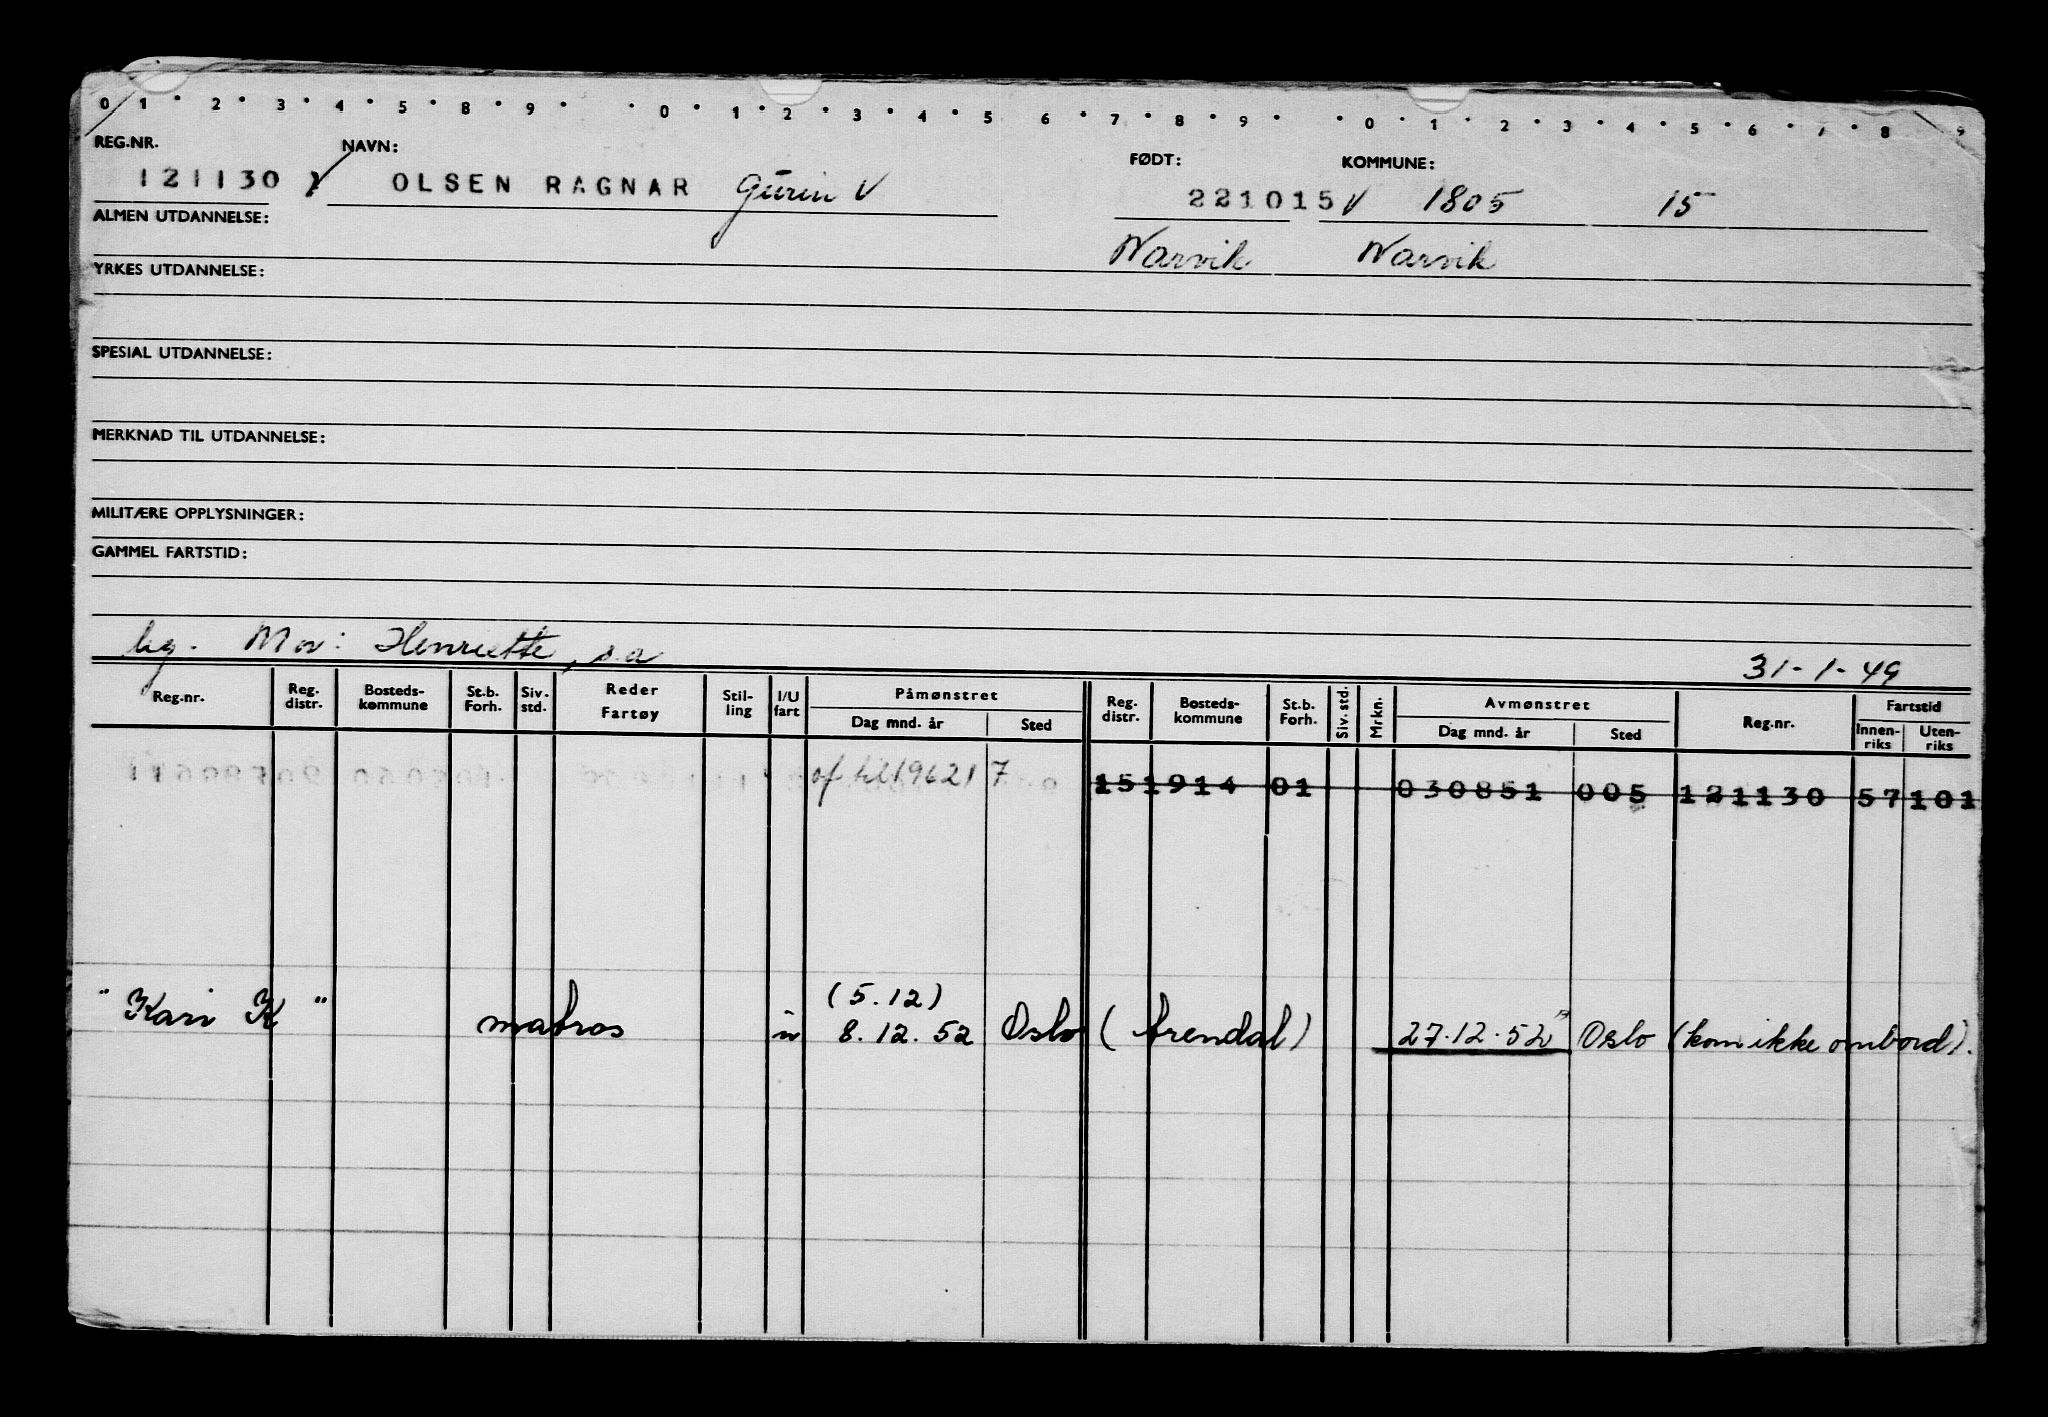 0 1 2 3 4 5 8 9 0 1 2 3 4 5 6 7 8 9 0 1 2 3 4 5 6 7 8 9
REG.NR. NAVN: FØDT: KOMMUNE:
121130 OLSEN RAGNAR 221015 V 1805 15
ALMEN UTDANNELSE:
Narvik Narvik
YRKES UTDANNELSE:
SPESIAL UTDANNELSE:
MERKNAD TIL UTDANNELSE:
MILITÆRE OPPLYSNINGER:
GAMMEL FARTSTID:
Mor: Henriette, s.a 31-1-49
Reg.nr. Reg. distr. Bosteds-kommune St.b. Forh. Siv. std. Reder Fartøy Stil-ling I/U fart Påmønstret Dag mnd. år Sted Reg. distr. Bosteds-kommune St.b. Forh. Siv. std. Mrkn. Avmønstret Dag mnd. år Sted Reg.nr. Fartstid Innen-riks Uten-riks
151914 01 030851 005 121130 57 101
(5.12)
"Kari K" matros u 8.12.52 Oslo (Arendal) 27.12.52 Oslo (kom ikke ombord).